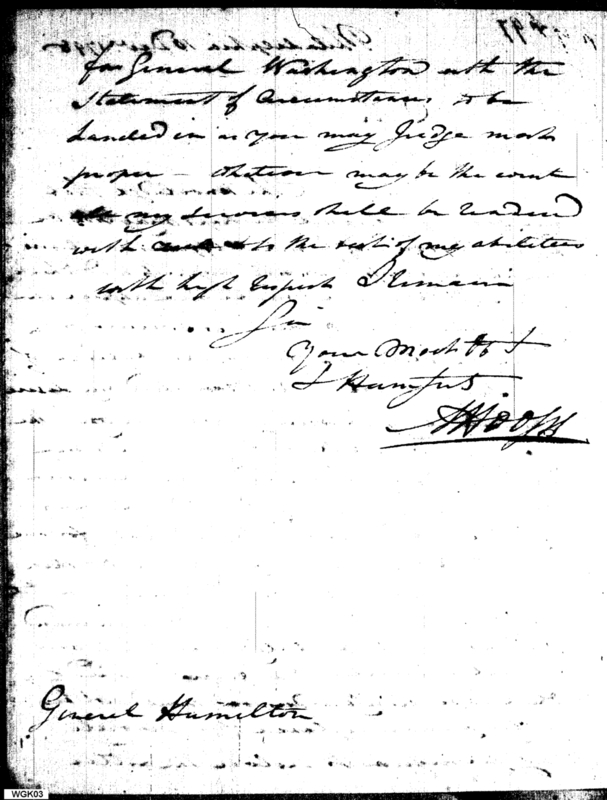 for General Washington with the
Statement of Circumstances, to be
handed in as you may Judge most
proper – whatever may be the event
my services shall be rendered
with to the best of my abilities
with high respect I remain
Sir
Your Most Ob t
& Hum Sert
AHoops
General Hamilton
WGK03